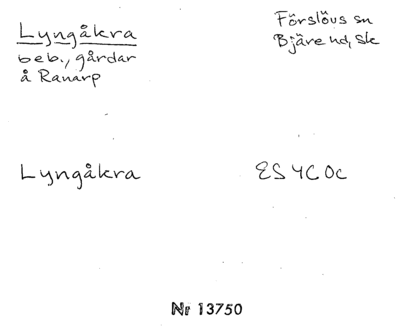 Lyngåkra
beb., gårdar
å Ranarp
Förslövs sn
Bjäre hd, Sk
Lyngåkra
ES 4C 0c
Nr 13750